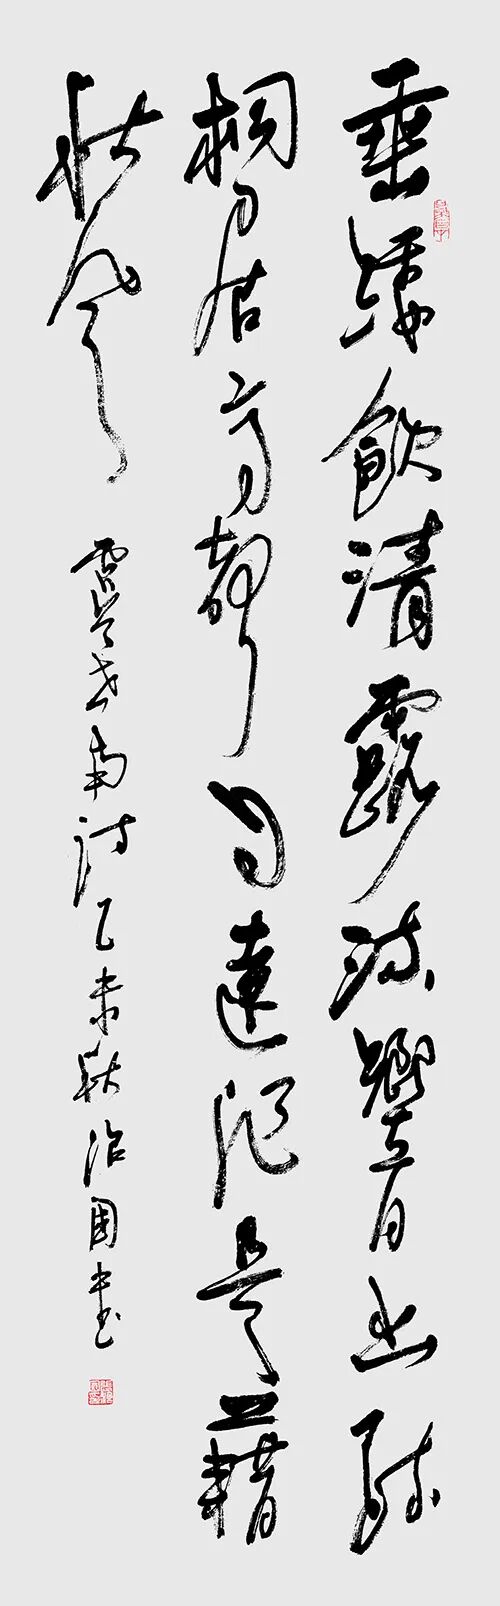 垂緌飲清露流響出疏
桐居高聲自遠非是藉
秋風
虞世南詩乙未秋治國書